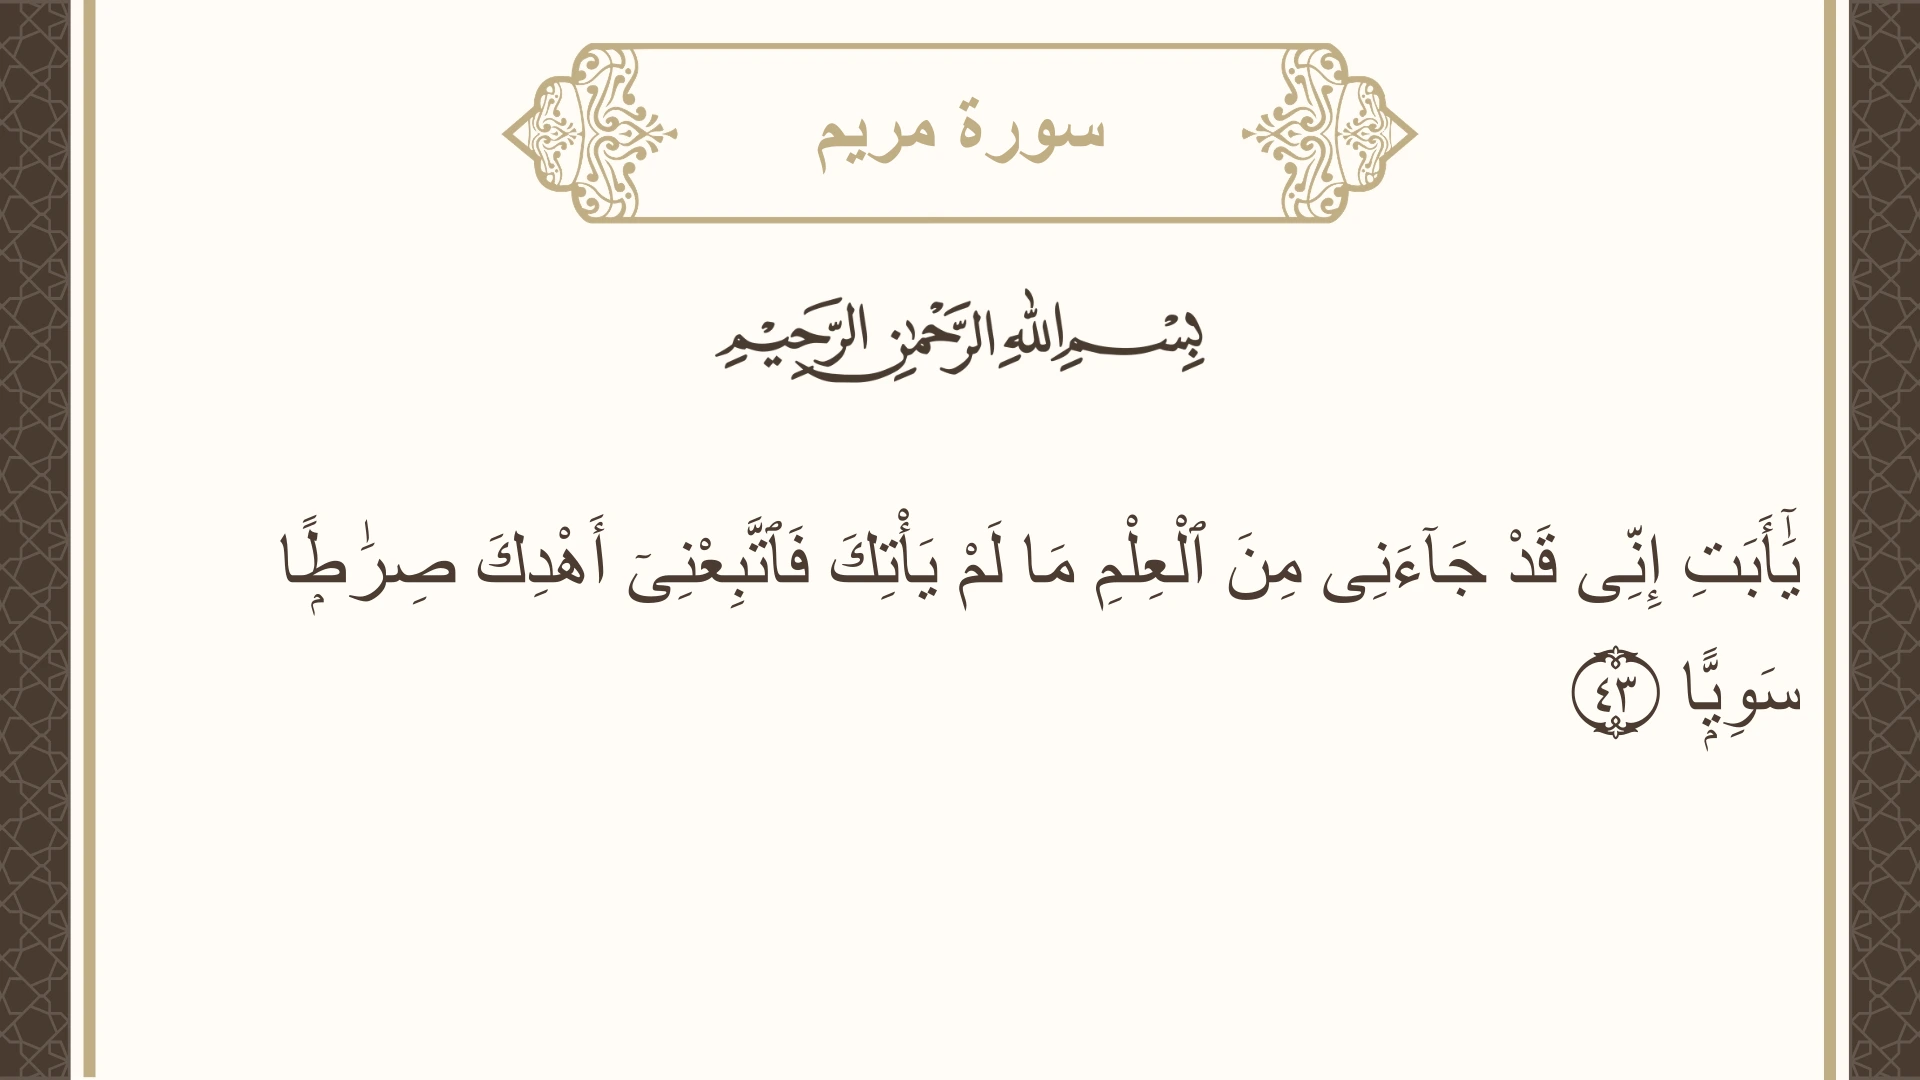 سورة مريم
بِسْمِ اللهِ الرَّحْمٰنِ الرَّحِيْمِ
يَٰٓأَبَتِ إِنِّى قَدْ جَآءَنِى مِنَ ٱلْعِلْمِ مَا لَمْ يَأْتِكَ فَٱتَّبِعْنِىٓ أَهْدِكَ صِرَٰطًۭا
سَوِيًّۭا ٤٣